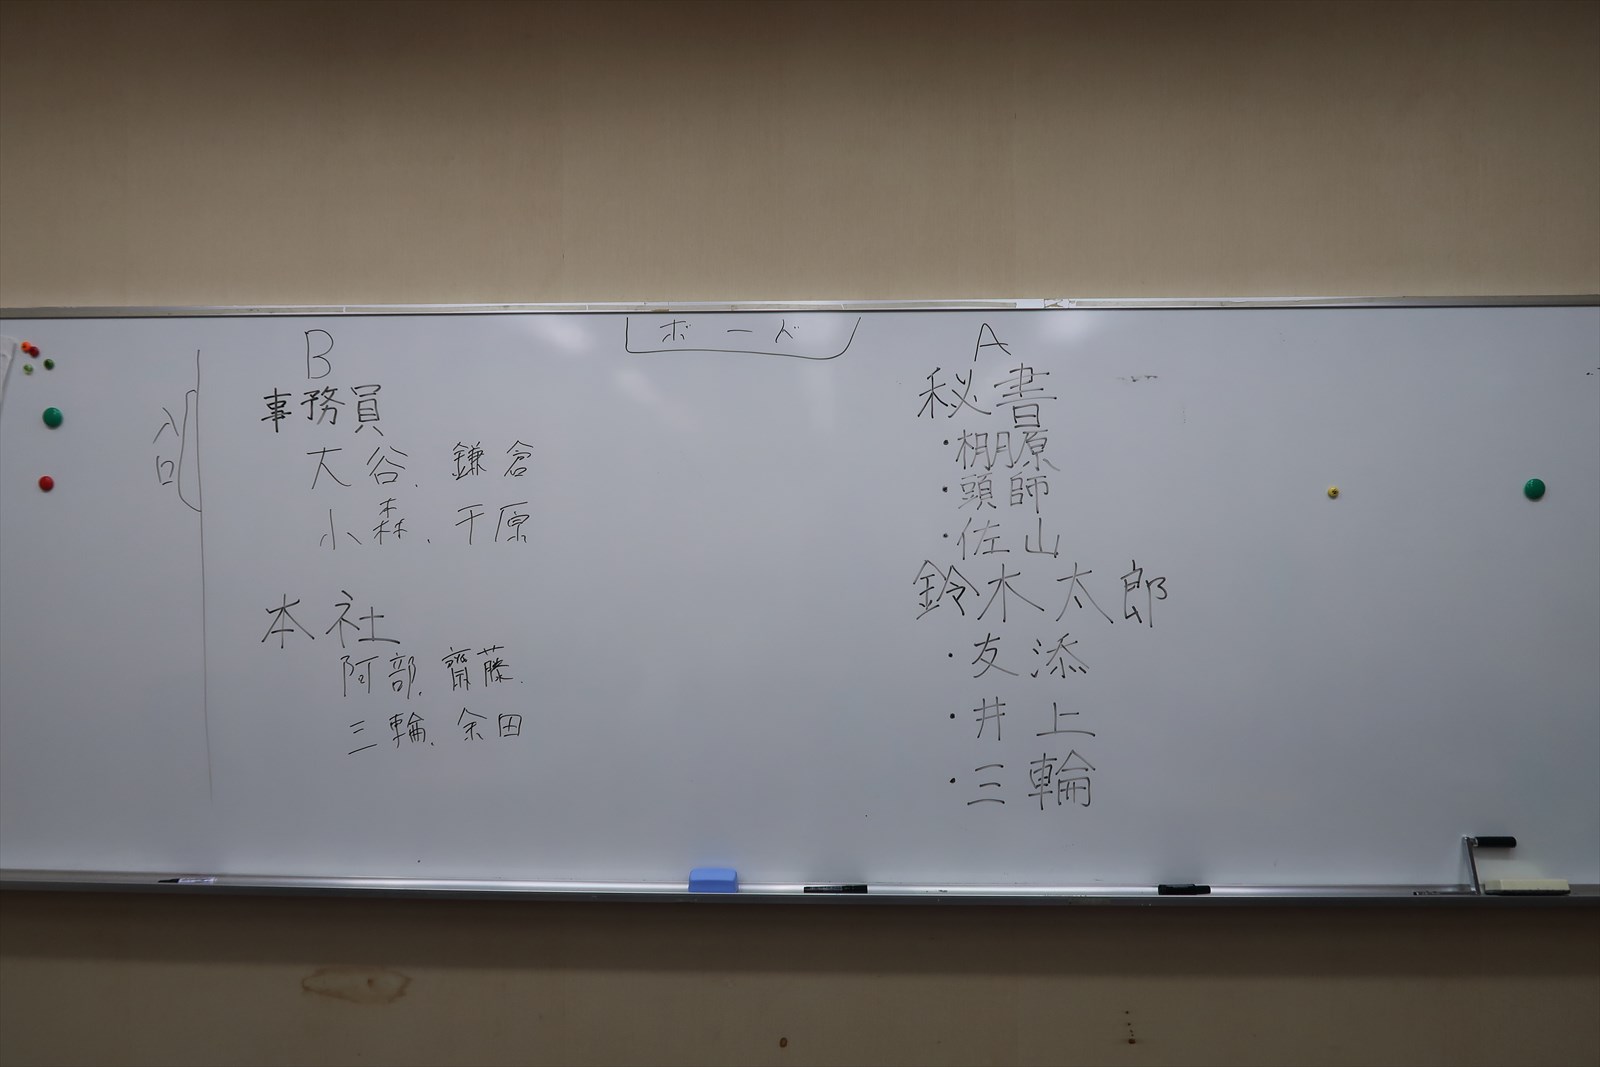 ボード
入口
B
事務員
大谷、鎌倉
小森、干原
本社
阿部、齋藤、
三輪、余田
A
秘書
・棚原
・頭師
・佐山
鈴木太郎
・友添
・井上
・三輪